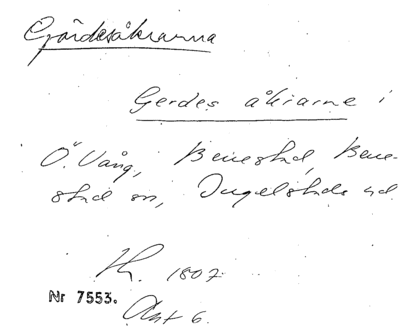 Gärdesåkrarna
Gerdes åkrarne i
Ö. Vång, Benestad, Bene-
stad sn, Ingelstads hd.
1807
Nr 7553.
Akt 6.